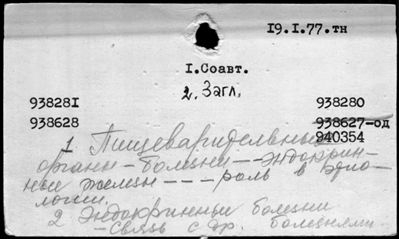 19.I.77.тн
I.Соавт.
2. Загл.
938281 938280
938628 938627-од
940354
1 Пищеварительные
органы – болезни – – эндокрин-
ные железы – – – роль в этио-
логии.
2 Эндокринные болезни
– связь с др. болезнями.